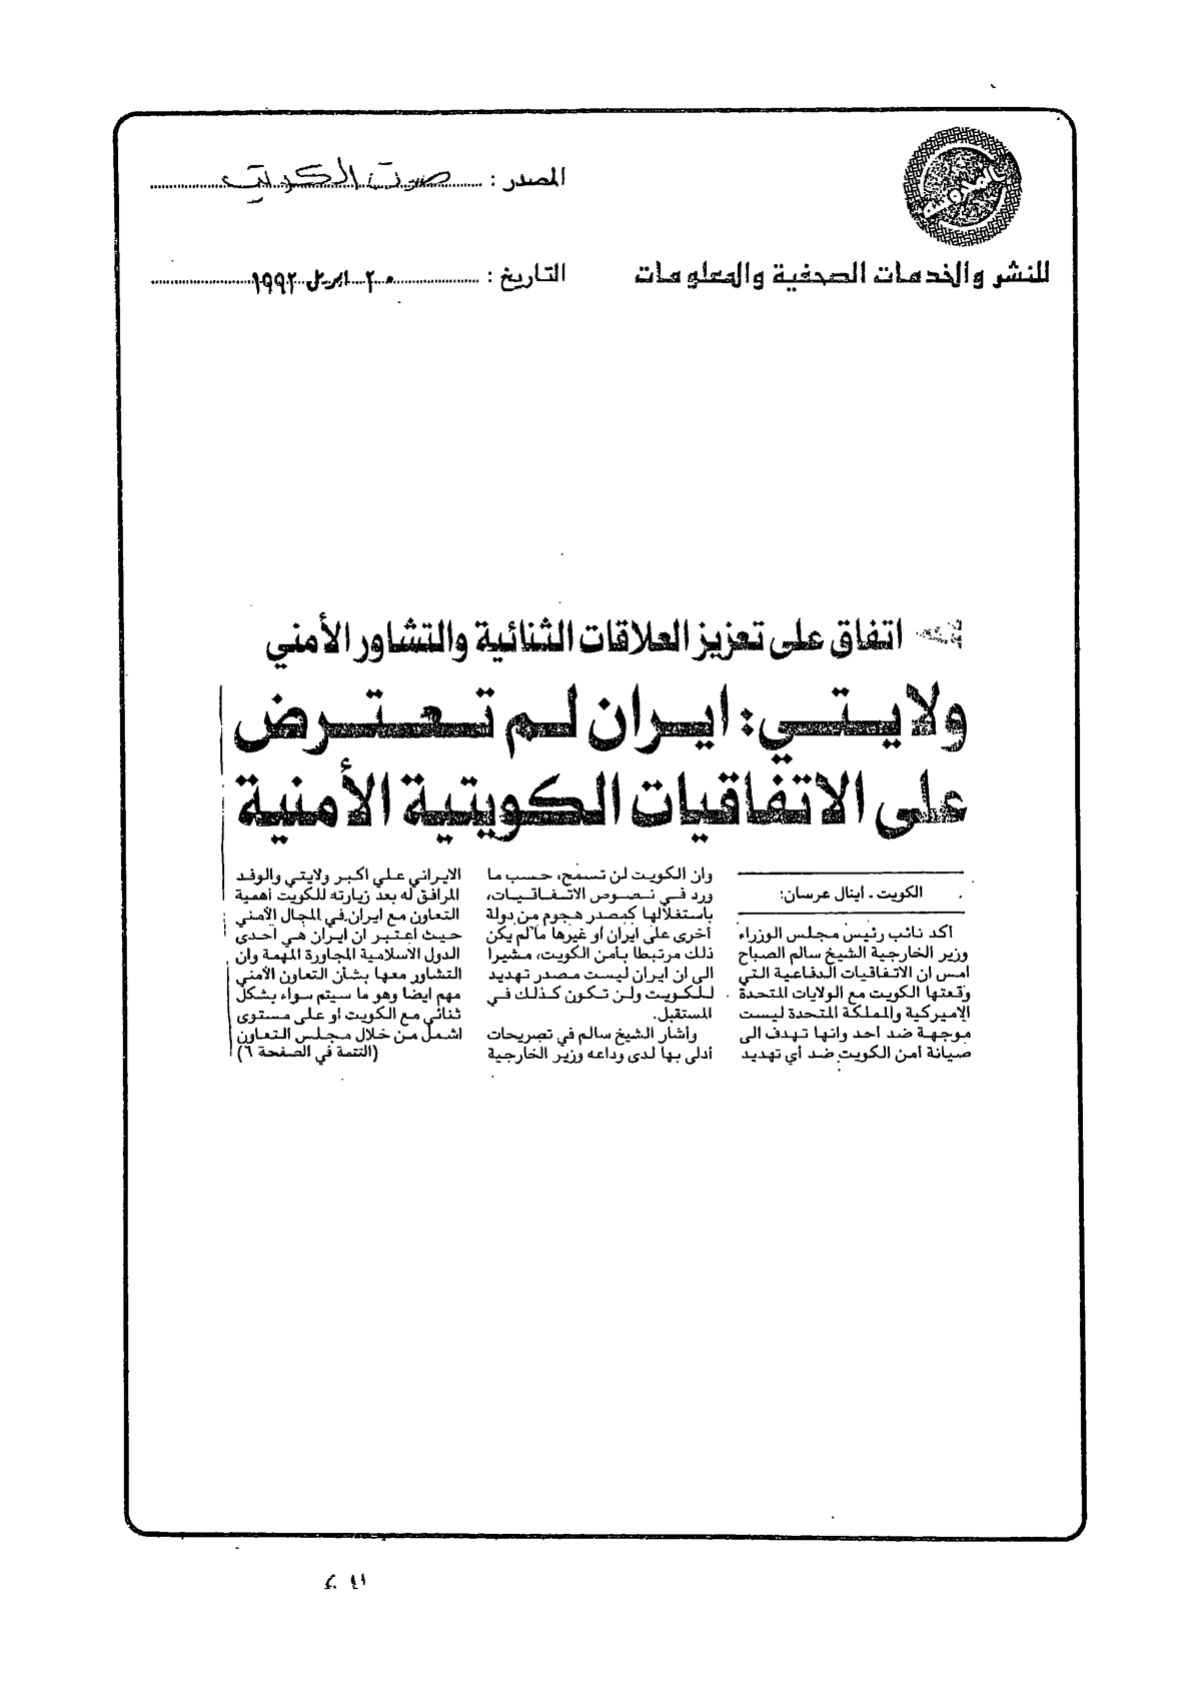 المصدر : صوت الكويت
للنشر والخدمات الصحفية والمعلومات
التاريخ : ٢٠ ابريل ١٩٩٢
اتفاق على تعزيز العلاقات الثنائية والتشاور الأمني
ولايتي: ايران لم تعترض
على الاتفاقيات الكويتية الأمنية
الكويت ـ اينال عرسان:
اكد نائب رئيس مجلس الوزراء
وزير الخارجية الشيخ سالم الصباح
امس ان الاتفاقيات الدفاعية التي
وقعتها الكويت مع الولايات المتحدة
الاميركية والمملكة المتحدة ليست
موجهة ضد احد وانها تهدف الى
صيانة أمن الكويت ضد أي تهديد
وان الكويت لن تسمح، حسب ما
ورد في نصوص الاتفاقيات،
باستغلالها كمصدر هجوم من دولة
أخرى على ايران او غيرها ما لم يكن
ذلك مرتبطا بأمن الكويت، مشيرا
الى ان ايران ليست مصدر تهديد
للكويت ولن تكون كذلك في
المستقبل.
وأشار الشيخ سالم في تصريحات
أدلى بها لدى وداعه وزير الخارجية
الايراني علي اكبر ولايتي والوفد
المرافق له بعد زيارته للكويت أهمية
التعاون مع ايران في المجال الأمني
حيث اعتبر ان ايران هي احدى
الدول الاسلامية المجاورة المهمة وان
التشاور معها بشأن التعاون الأمني
مهم ايضا وهو ما سيتم سواء بشكل
ثنائي مع الكويت او على مستوى
اشمل من خلال مجلس التعاون
(التتمة في الصفحة ٦)